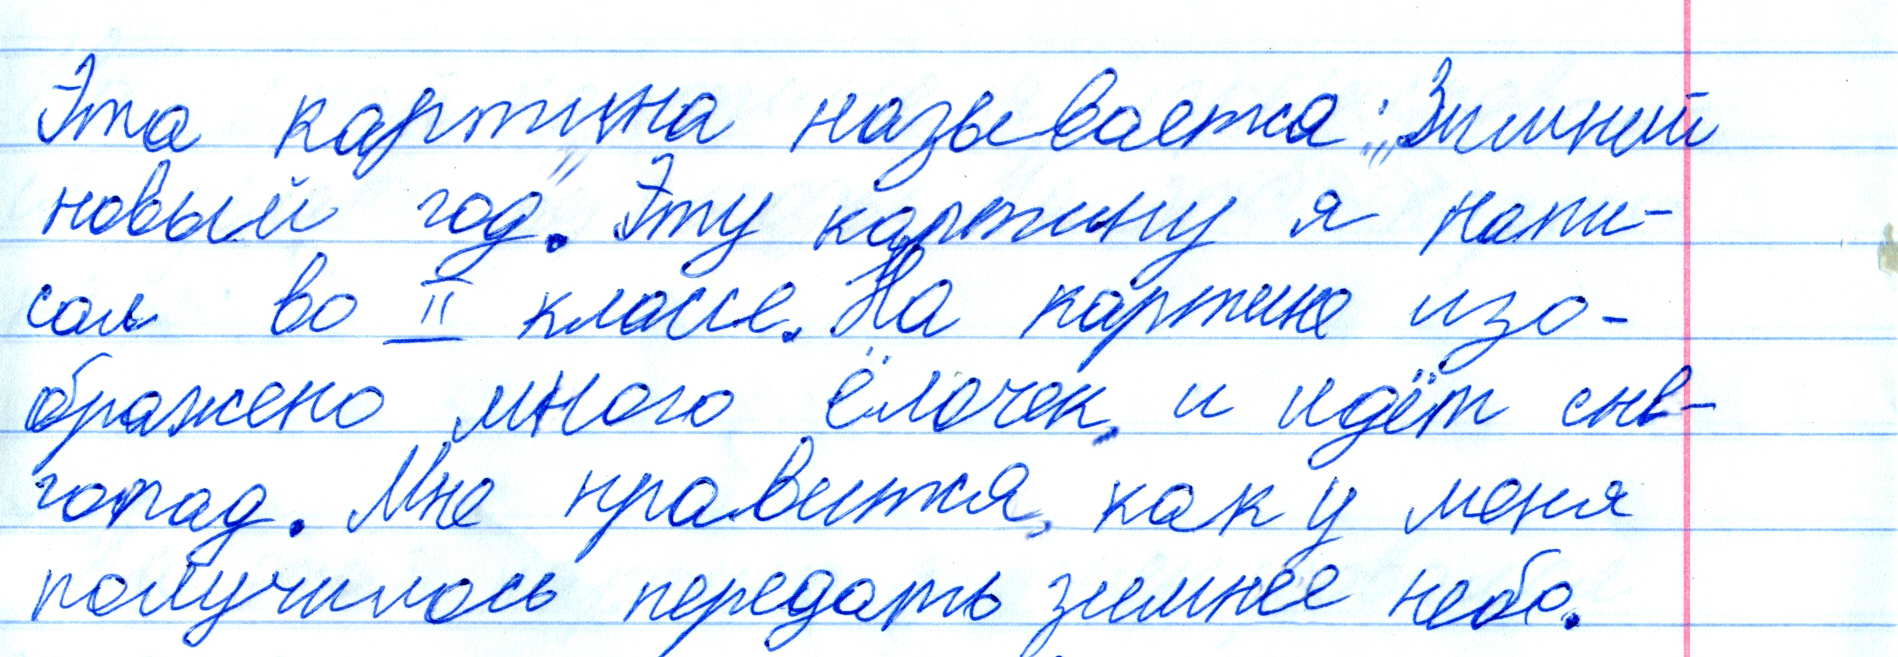 Эта картина называется: „Зимний
новый год”. Эту картину я напи-
сал во II классе. На картине изо-
бражено много ёлочек, и идёт сне-
гопад. Мне нравится, как у меня
получилось передать зимнее небо.